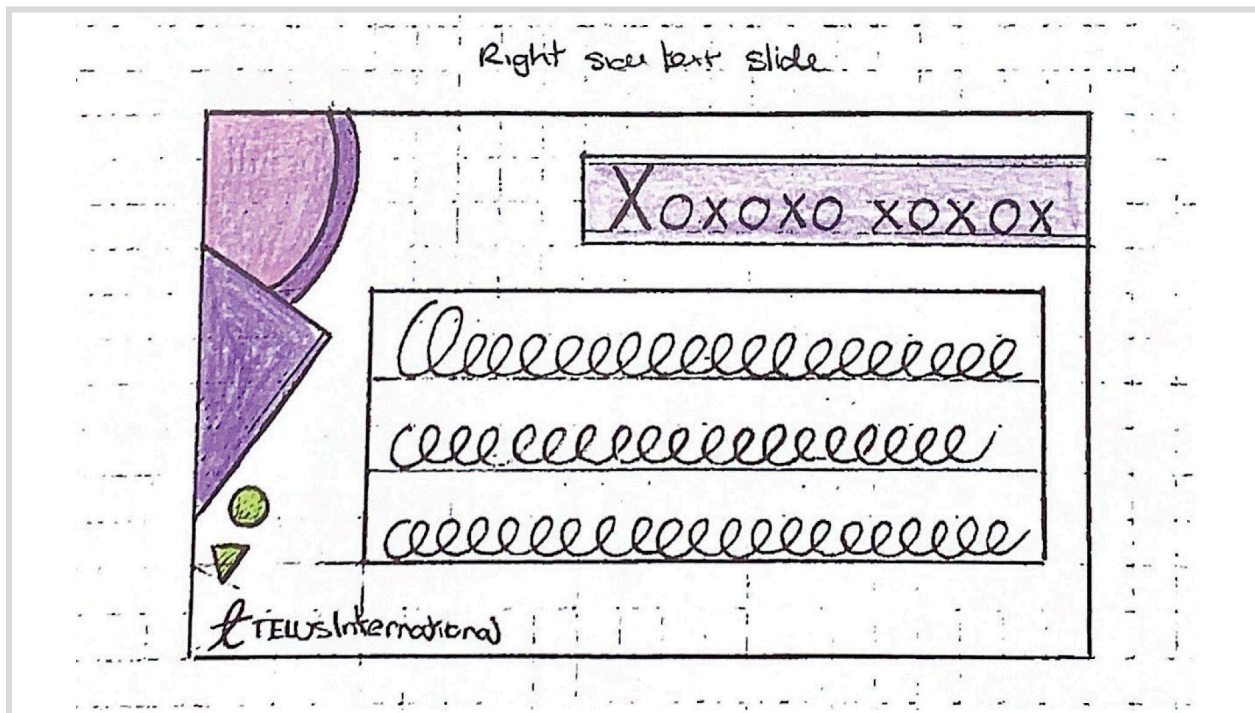 Right side text slide
Xoxoxo xoxox
t TELUS International